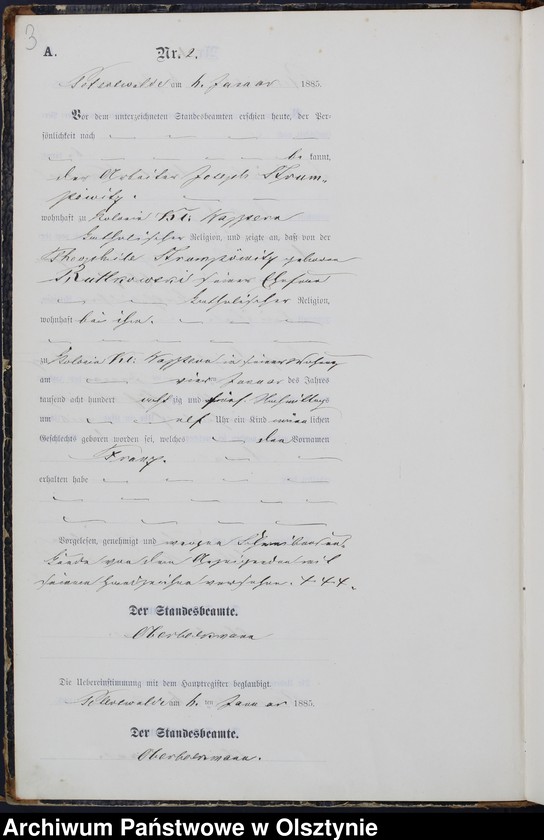 3
A.
Nr. 2.
am Januar 1885.
Vor dem unterzeichneten Standesbeamten erschien heute, der Per-
sönlichkeit nach
be kannt,
der Arbeiter Joseph Strum-
powitz.
wohnhaft zu Kolonie Kl: Kappern
katholischer Religion, und zeigte an, daß von der
Strumpowitz geborene
Rutkowski seiner Ehefrau
katholischer Religion,
wohnhaft bei ihm.
zu Kolonie Kl: Kappern in seiner Wohnung
am vier Januar des Jahres
tausend acht hundert acht zig und fünf Nachmittags
um elf Uhr ein Kind männlichen
Geschlechts geboren worden sei, welches den Vornamen
Franz.
erhalten habe
Vorgelesen, genehmigt und wegen Schreibensun-
kunde von dem Anzeigenden mit
seinem Handzeichen versehen. + + +.
Der Standesbeamte.
Die Uebereinstimmung mit dem Hauptregister beglaubigt.
am ten Januar 1885.
Der Standesbeamte.
Archiwum Państwowe w Olsztynie